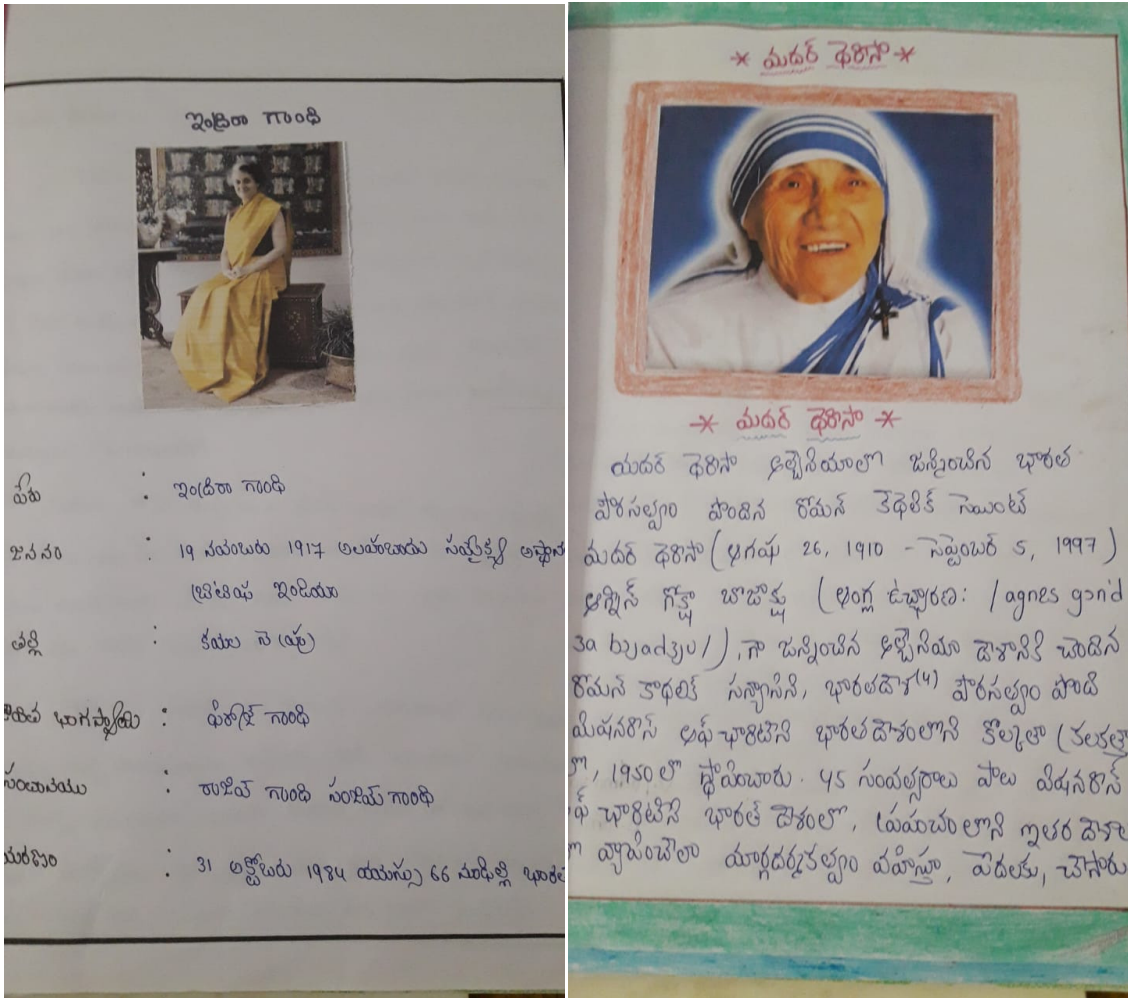 ఇందిరా గాంధి
పేరు : ఇందిరా గాంధి
జననం : 19 నవంబరు 1917 అలహాబాదు సయైక్య
బ్రిటిష్ ఇండియా
తల్లి : కమల నెహ్రు
భాగస్వామి : ఫిరోజ్ గాంధి
సంతానము : రాజీవ్ గాంధి సంజయ్ గాంధి
మరణం : 31 అక్టోబరు 1984 వయస్సు 66 న్యూఢిల్లి
* మదర్ థెరిసా *
* మదర్ థెరిసా *
మదర్ థెరిసా అల్బేనియాలో జన్మించిన భారత
పౌరసత్వం పొందిన రోమన్ కేథలిక్ సెయింట్
మదర్ థెరిసా (ఆగష్టు 26, 1910 - సెప్టెంబర్ 5, 1997)
ఆగ్నీస్ గోక్షా బొజాక్షు (ఆంగ్ల ఉచ్ఛారణ: /agnes
గా జన్మించిన అల్బేనియా దేశానికి చెందిన
రోమన్ కాథలిక్ సన్యాసిని, భారతదేశ(4) పౌరసత్వం పొంది
మిషనరీస్ ఆఫ్ ఛారిటిని భారతదేశంలోని కోల్కతా (కలకత్తా
, 1950 లో స్థాపించారు. 45 సంవత్సరాలు పాటు మిషనరీస్
ఛారిటిని భారత్ దేశంలో, ప్రపంచంలోని ఇతర
వ్యాపించేలా మార్గదర్శకత్వం వహిస్తూ, పేదలకు, చేసారు